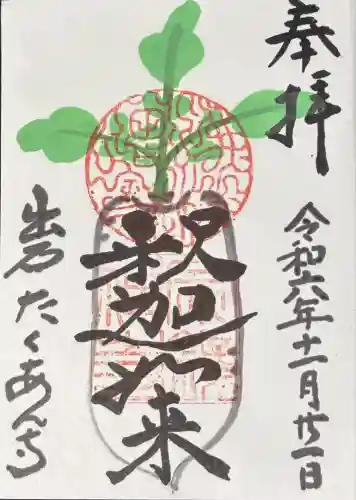 奉拝
令和六年十一月廿一日
釈迦如来
出石たくあん寺